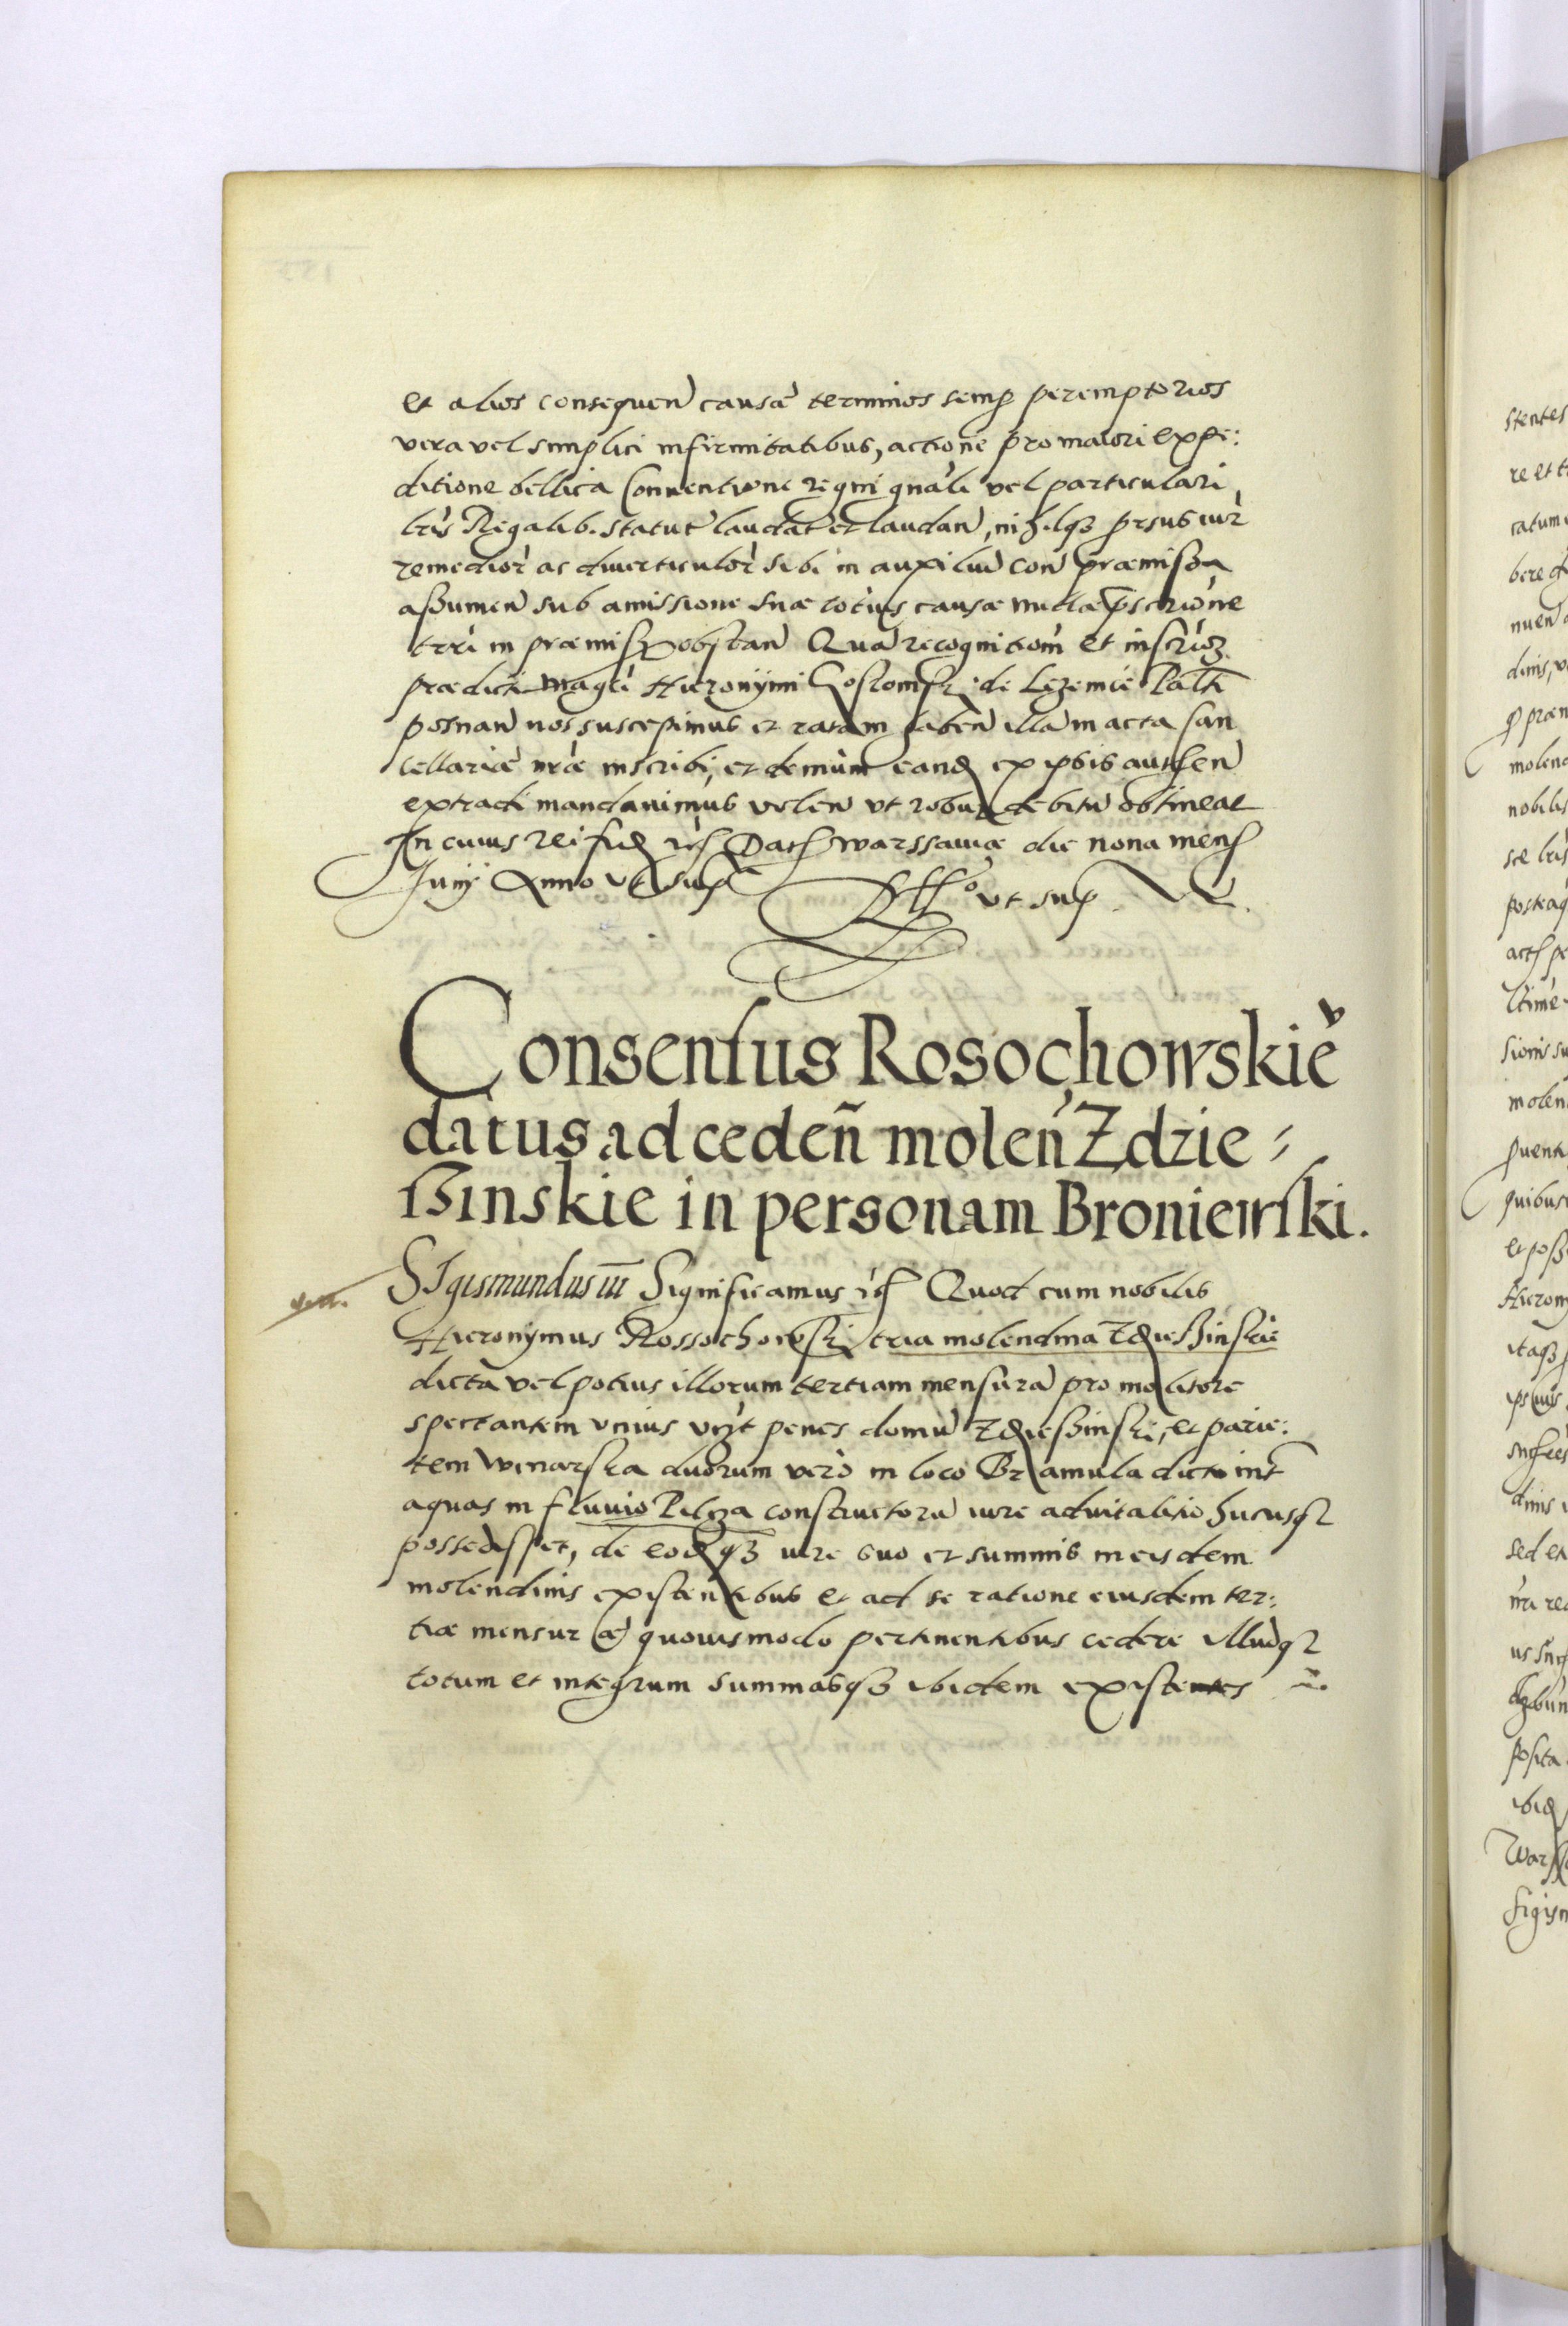 et alios consequen̄ causæ terminos semp peremptorios
vera vel simplici infirmitatibus, actione pro maiori expe:
ditione bellica Conuentione regni gnāli vel particulari,
lr̄is Regalib. statut laudat et laudan̄, nihilqȝ prsus iur̄
remedior̄ ac diuerticulor̄ sibi in auxiliū con̄ præmissa
assumen̄ sub amissione suæ totius causæ nulla
trr̄i in præmiss obstan̄ Quā recognitiom̄ et
prædicti Magci Hieronÿmi Gostomski de Lezenice Palti
posnan̄ nos suscepimus et ratam haben̄ illā in acta Can
cellariæ nr̄æ inscribi, et demum eand ex ipsis authen̄
extradi mandauimus volen̄ vt robur debitū obtineat
In cuius rei fid rc̄ Dat Warssauiæ die nona mens
Junÿ Anno vt supᵃ
vt sup
Consensus Rosochowskiē
datus ad ceden̄ molen̄ Zdzie-
ßinskie in personam Broniewski.
SIgismundus III Significamus rc̄ Quod cum nobilis
Hieronymus Rossochowski tria molendina Zdzießinskie
dicta vel potius illorum tertiam mensurā pro molitore
spectantem vnius vt penes domū Zdzießinski, et parie:
tem Winarska duorum verò in loco Bramula dicto int
aquas in fluuio Pilcza constructorū iure aduitalitio hucusqȝ
possedisset, de eodqȝ iure suo et summis in eisdem
molendinis existentibus et ad se ratione eiusdem ter:
tiæ mensuræ quouismodo pertinentibus cedere illudqȝ
totum et integrum summasqȝ ibidem existentes